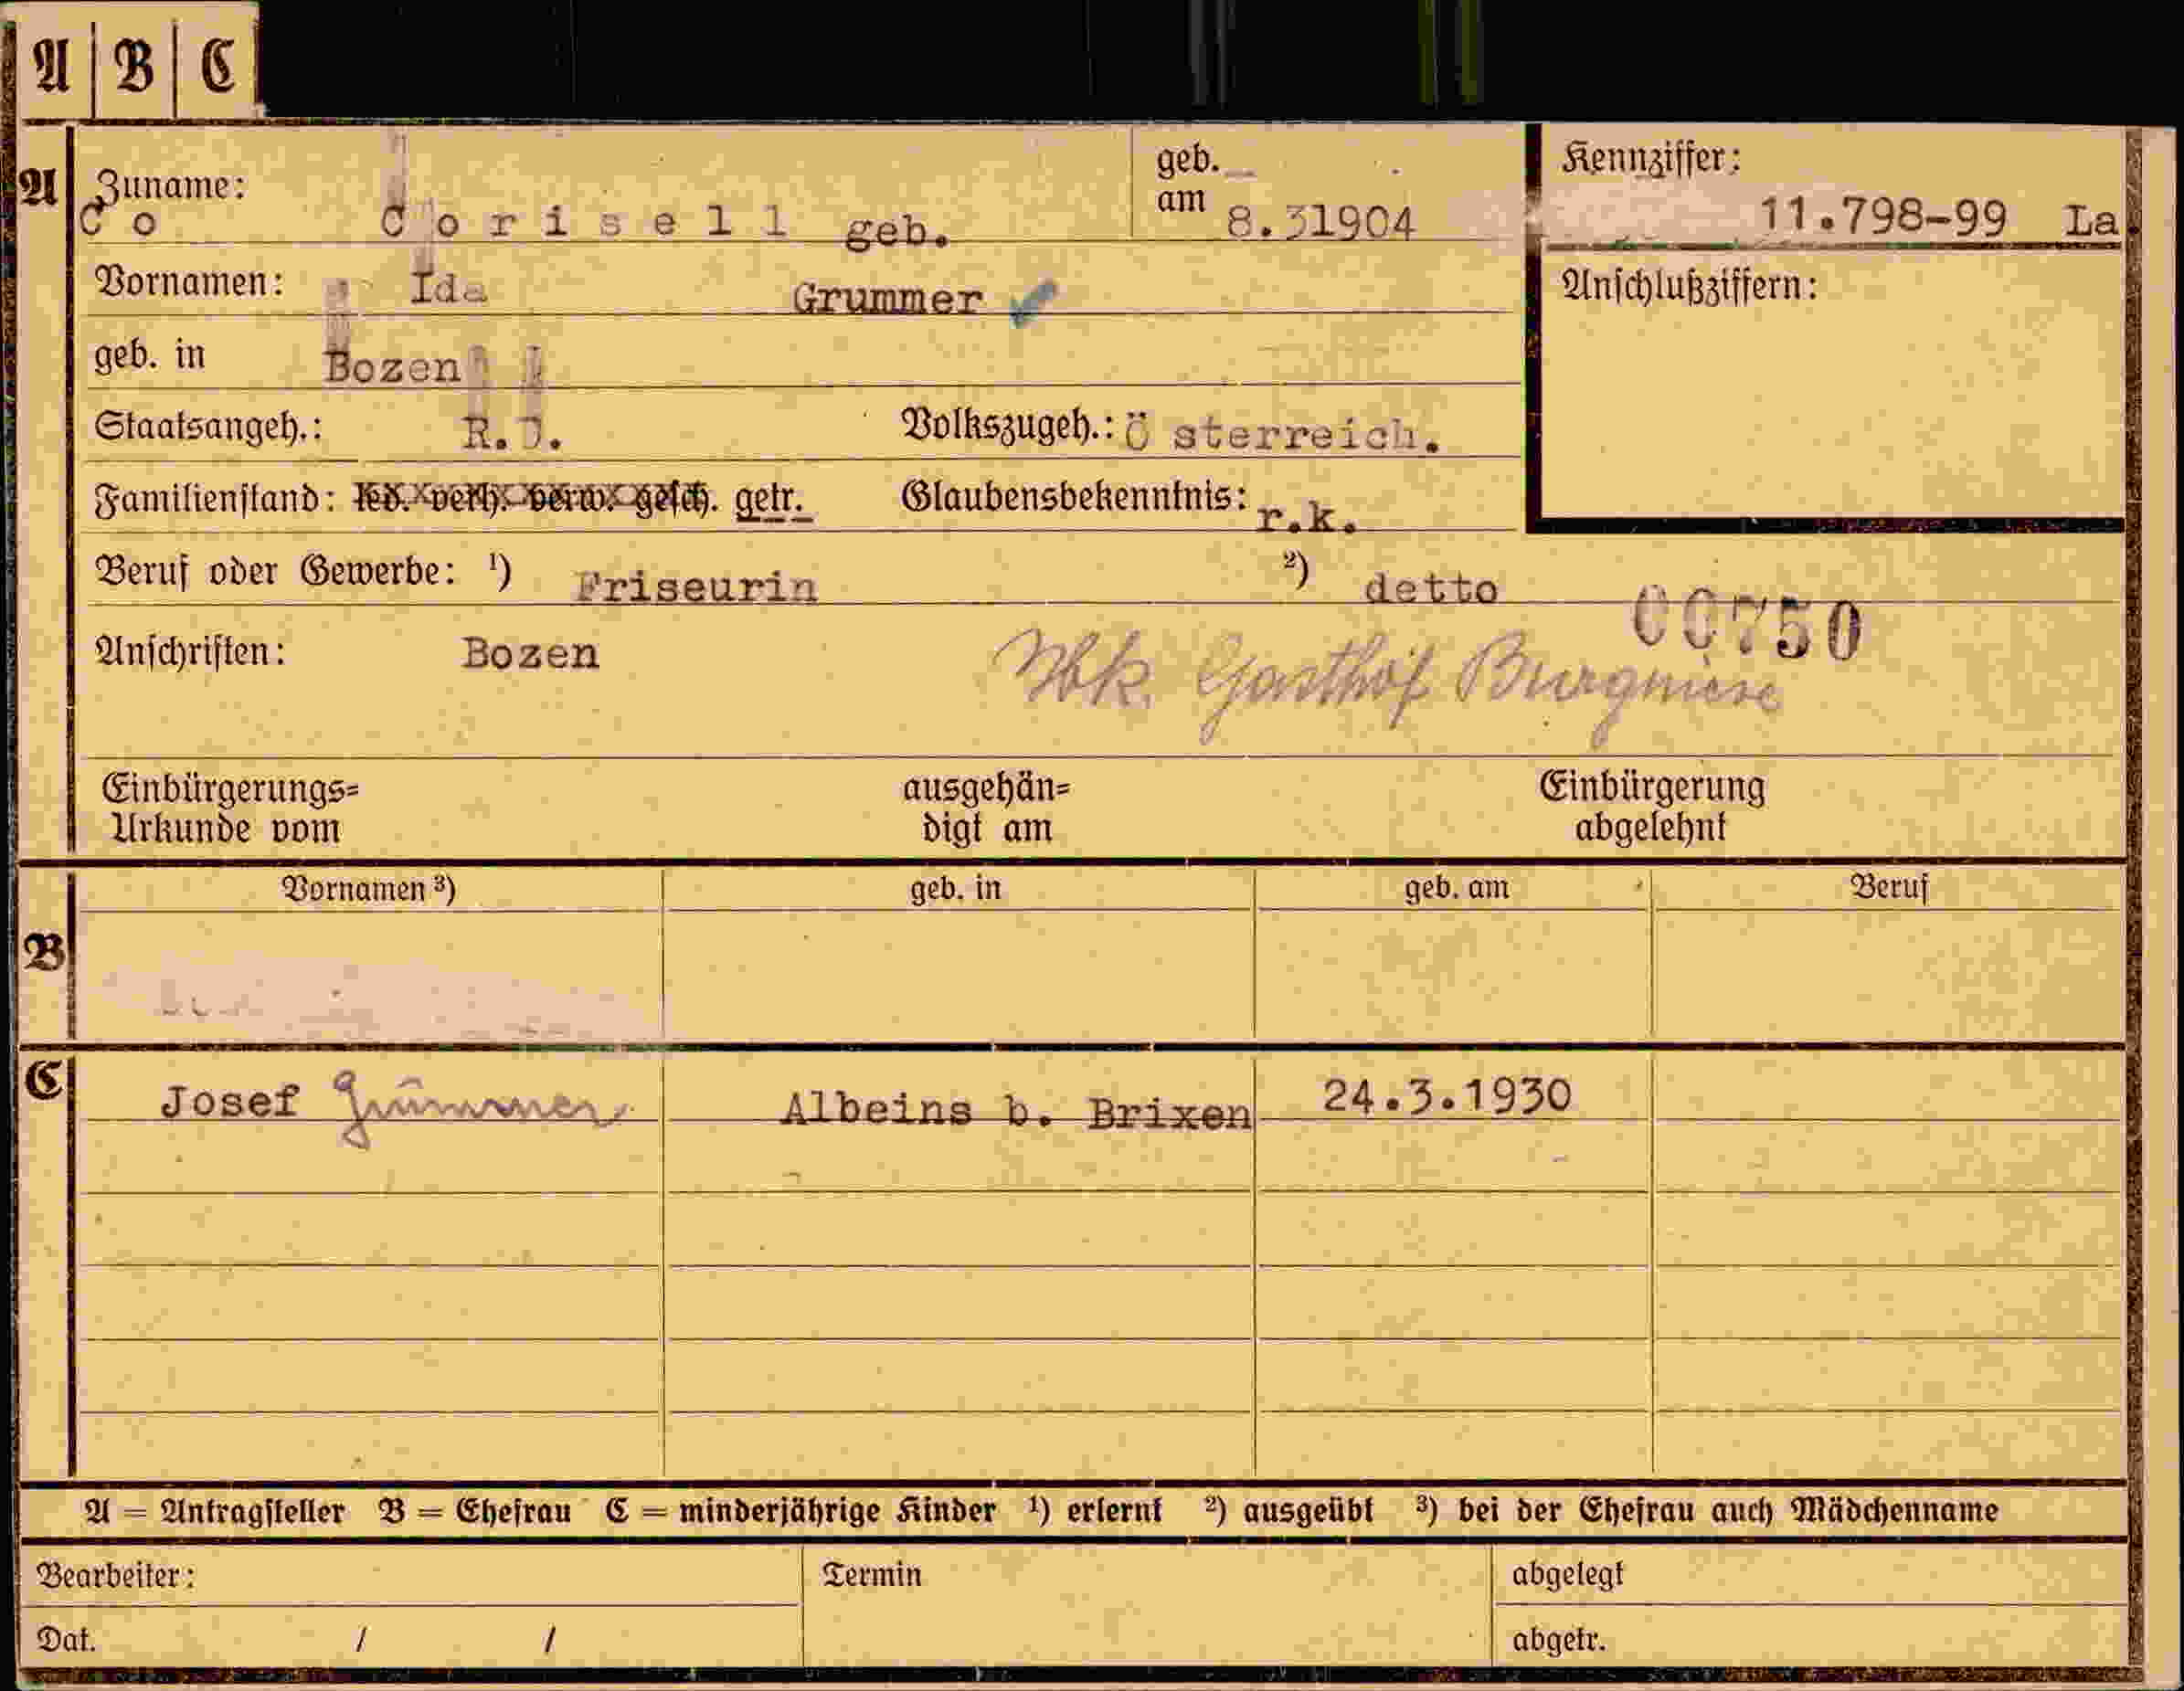 A | B | C
geb.
Kennziffer:
A Zuname:
am 8.31904
11.798-99 La
Co Corisell geb.
Vornamen: Ida Grummer
Anschlußziffern:
geb. in Bozen
Staatsangeh.: R.D. Volkszugeh.: Ö sterreich.
Familienstand: led. verh. verw. gesch. getr. Glaubensbekenntnis: r.k.
Beruf oder Gewerbe: ¹) Friseurin ²) detto
00750
Anschriften: Bozen Ibk. Gasthof Burgriese
Einbürgerungs= ausgehän= Einbürgerung
Urkunde vom digt am abgelehnt
Vornamen ³) geb. in geb. am Beruf
B
C Josef Grummer Albeins b. Brixen 24.3.1930
A = Antragsteller B = Ehefrau C = minderjährige Kinder ¹) erlernt ²) ausgeübt ³) bei der Ehefrau auch Mädchenname
Bearbeiter: Termin abgelegt
Dat. / / abgetr.